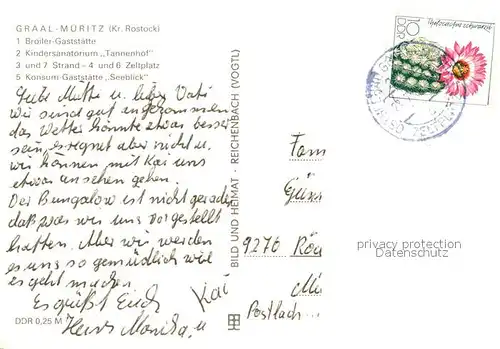 GRAAL-MÜRITZ (Kr. Rostock)
1 Broiler-Gaststätte
2 Kindersanatorium „Tannenhof"
3 und 7 Strand – 4 und 6 Zeltplatz
5 Konsum-Gaststätte „Seeblick"
Liebe Mutti u. lieber Vati
wir sind gut angekommen
das Wetter könnte etwas besser
sein, es regnet aber nicht u.
wir können mit Kai uns
etwas ansehen gehen.
Der Bungalow ist nicht gerade
daß was wir uns vorgestellt
hatten. Aber wir werden
es uns so gemütlich wie
es geht machen.
Es grüßt Euch
Monika u
Kai
DDR 0,25 M
BILD UND HEIMAT · REICHENBACH (VOGTL)
DDR
10
Fam
9270
Postfach
privacy protection
Datenschutz